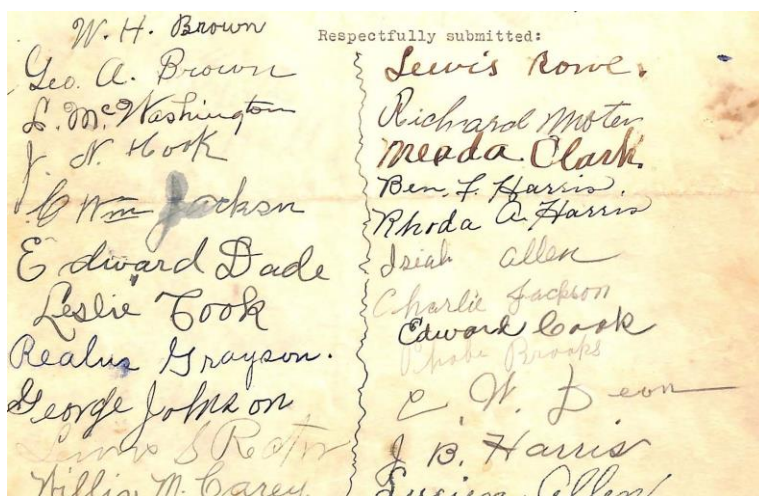 Respectfully submitted:
W. H. Brown
Geo. A. Brown
L. Mc. Washington
J. N. Hook
C Wm Jackson
Edward Dade
Leslie Cook
Realus Grayson.
George Johnson
Willis M. Carey
Lewis Rowe.
Richard Moten
Meada Clark.
Ben. F. Harris.
Rhoda A. Harris
Isiah Allen
Charlie Jackson
Edward Cook
Phobe Brooks
C W. Deon
J. B. Harris
Lucien Allen